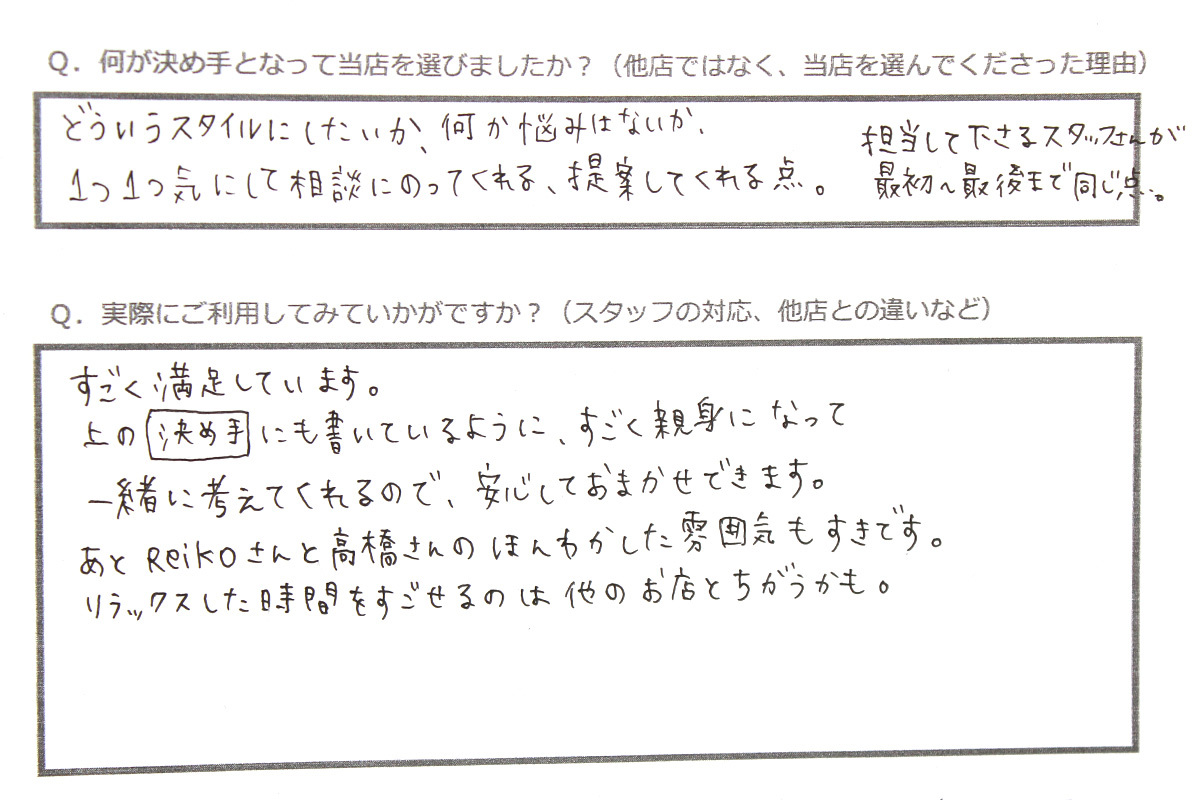 Q. 何が決め手となって当店を選びましたか？（他店ではなく、当店を選んでくださった理由）
どういうスタイルにしたいか、何か悩みはないか、
1つ1つ気にして相談にのってくれる、提案してくれる点。
担当して下さるスタッフさんが
最初〜最後まで同じ点。
Q. 実際にご利用してみていかがですか？（スタッフの対応、他店との違いなど）
すごく満足しています。
上の決め手にも書いているように、すごく親身になって
一緒に考えてくれるので、安心しておまかせできます。
あとReikoさんと高橋さんのほんわかした雰囲気もすきです。
リラックスした時間をすごせるのは他のお店とちがうかも。